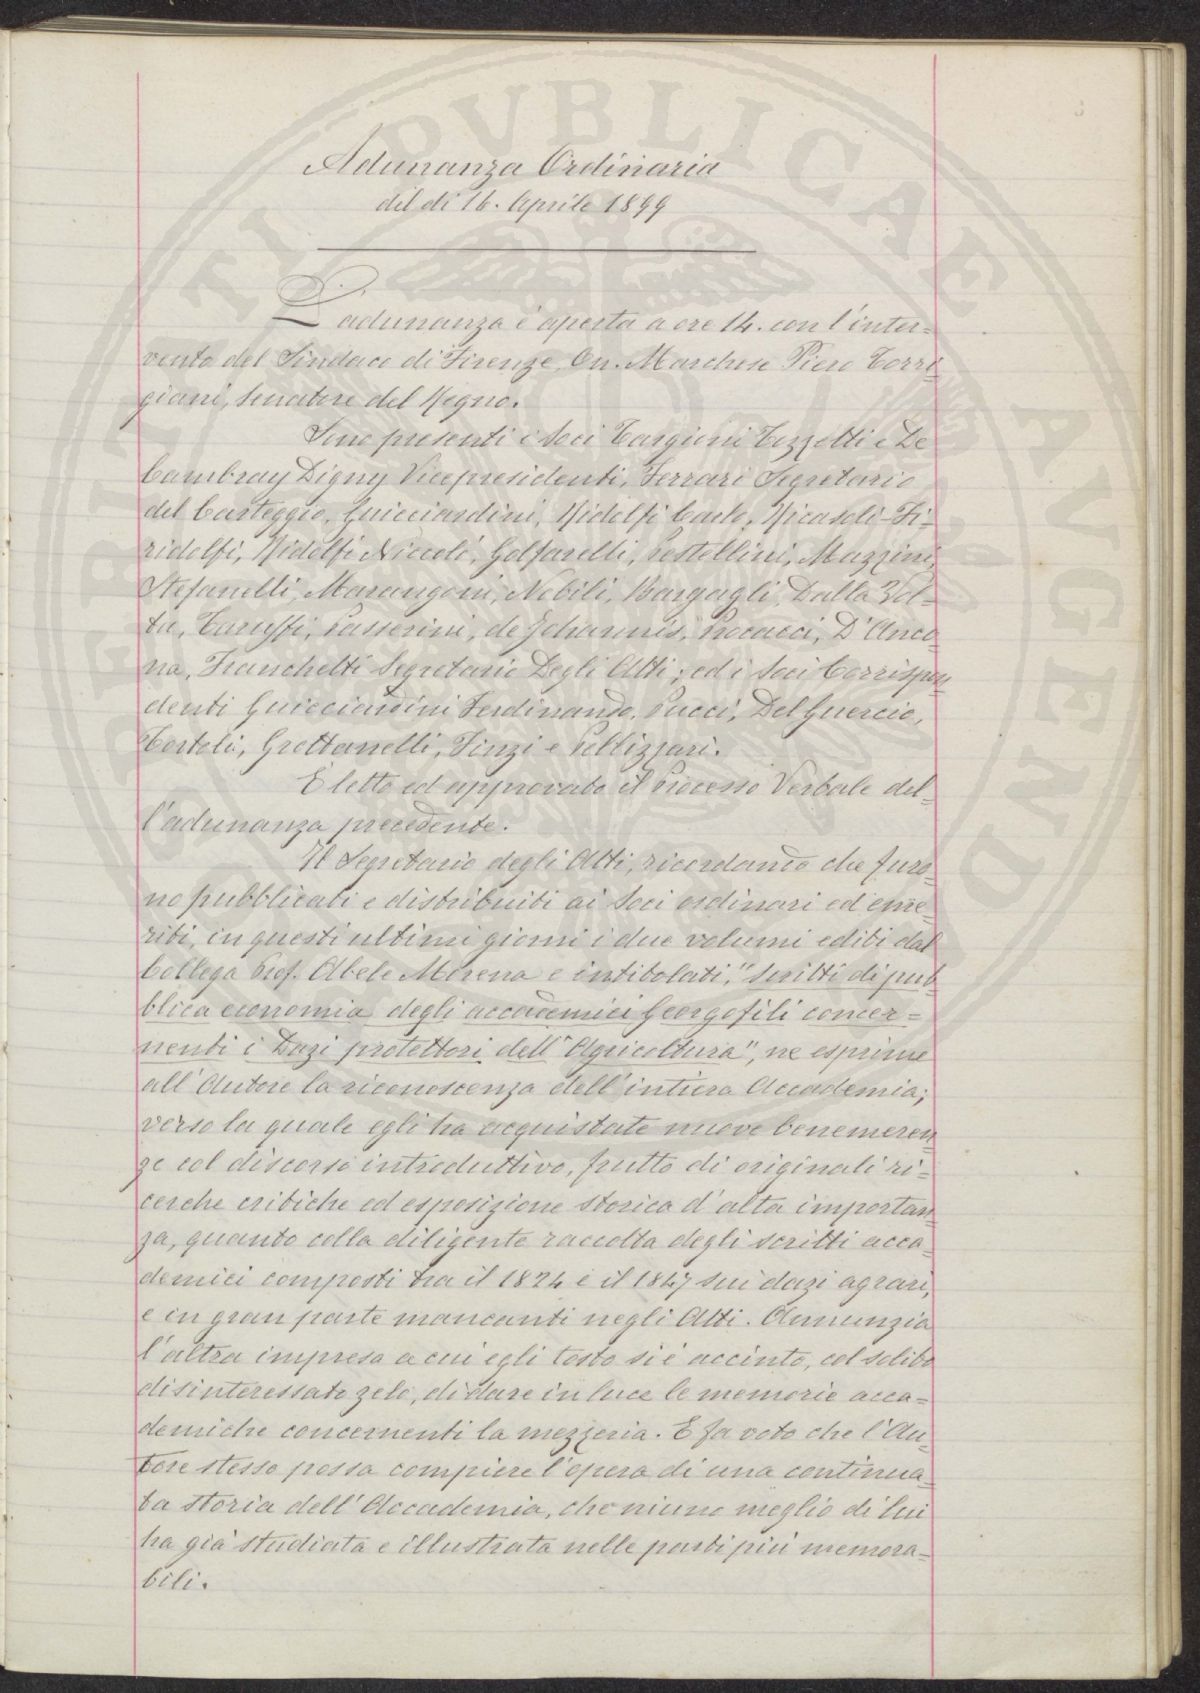 Adunanza Ordinaria
del dì 16. Aprile 1899
L'adunanza è aperta a ore 14. con l'inter=
vento del Sindaco di Firenze, On. Marchese Piero Torri-
giani, senatore del Regno.
Sono presenti i Soci Targioni Tozzetti e De
Cambray Digny Vicepresidenti, Ferrari Segretario
del Carteggio, Guicciardini, Ridolfi Carlo, Ricasoli-Fi-
ridolfi, Ridolfi Niccolò, Golfarelli, Pestellini, Mazzini,
Stefanelli, Marangoni, Nobili, Bargagli, Dalla Vol=
ta, Taruffi, Passerini, de Johannis, Procacci, D'Anco
na, Franchetti Segretario Degli Atti; ed i Soci Corrispon
denti Guicciardini Ferdinando, Pucci, Del Guercio,
Bertoli, Grottanelli, Finzi e Pellizzari.
È letto ed approvato il Processo Verbale del-
l'adunanza precedente.
Il Segretario degli Atti, ricordando che furo-
no pubblicati e distribuiti ai Soci ordinari ed eme-
riti, in questi ultimi giorni i due volumi editi dal
Collega Prof. Abele Morena e intitolati, "scritti di pub-
blica economia degli accademici Georgofili concer=
nenti i Dazi protettori dell'Agricoltura", ne esprime
all'Autore la riconoscenza dell'intiera Accademia;
verso la quale egli ha acquistate nuove benemeren
ze col discorso introduttivo, frutto di originali ri=
cerche critiche ed esposizione storica d'alta importan-
za, quanto colla diligente raccolta degli scritti acca-
demici composti tra il 1824 e il 1847 sui dazi agrari,
e in gran parte mancanti negli Atti. Annunzia
l'altra impresa a cui egli tosto si è accinto, col solito
disinteressato zelo, di dare in luce le memorie acca=
demiche concernenti la mezzeria. E fa voto che l'Au-
tore stesso possa compiere l'opera di una continua-
ta storia dell'Accademia, che niuno meglio di lui
ha già studiata e illustrata nelle parti più memora=
bili.